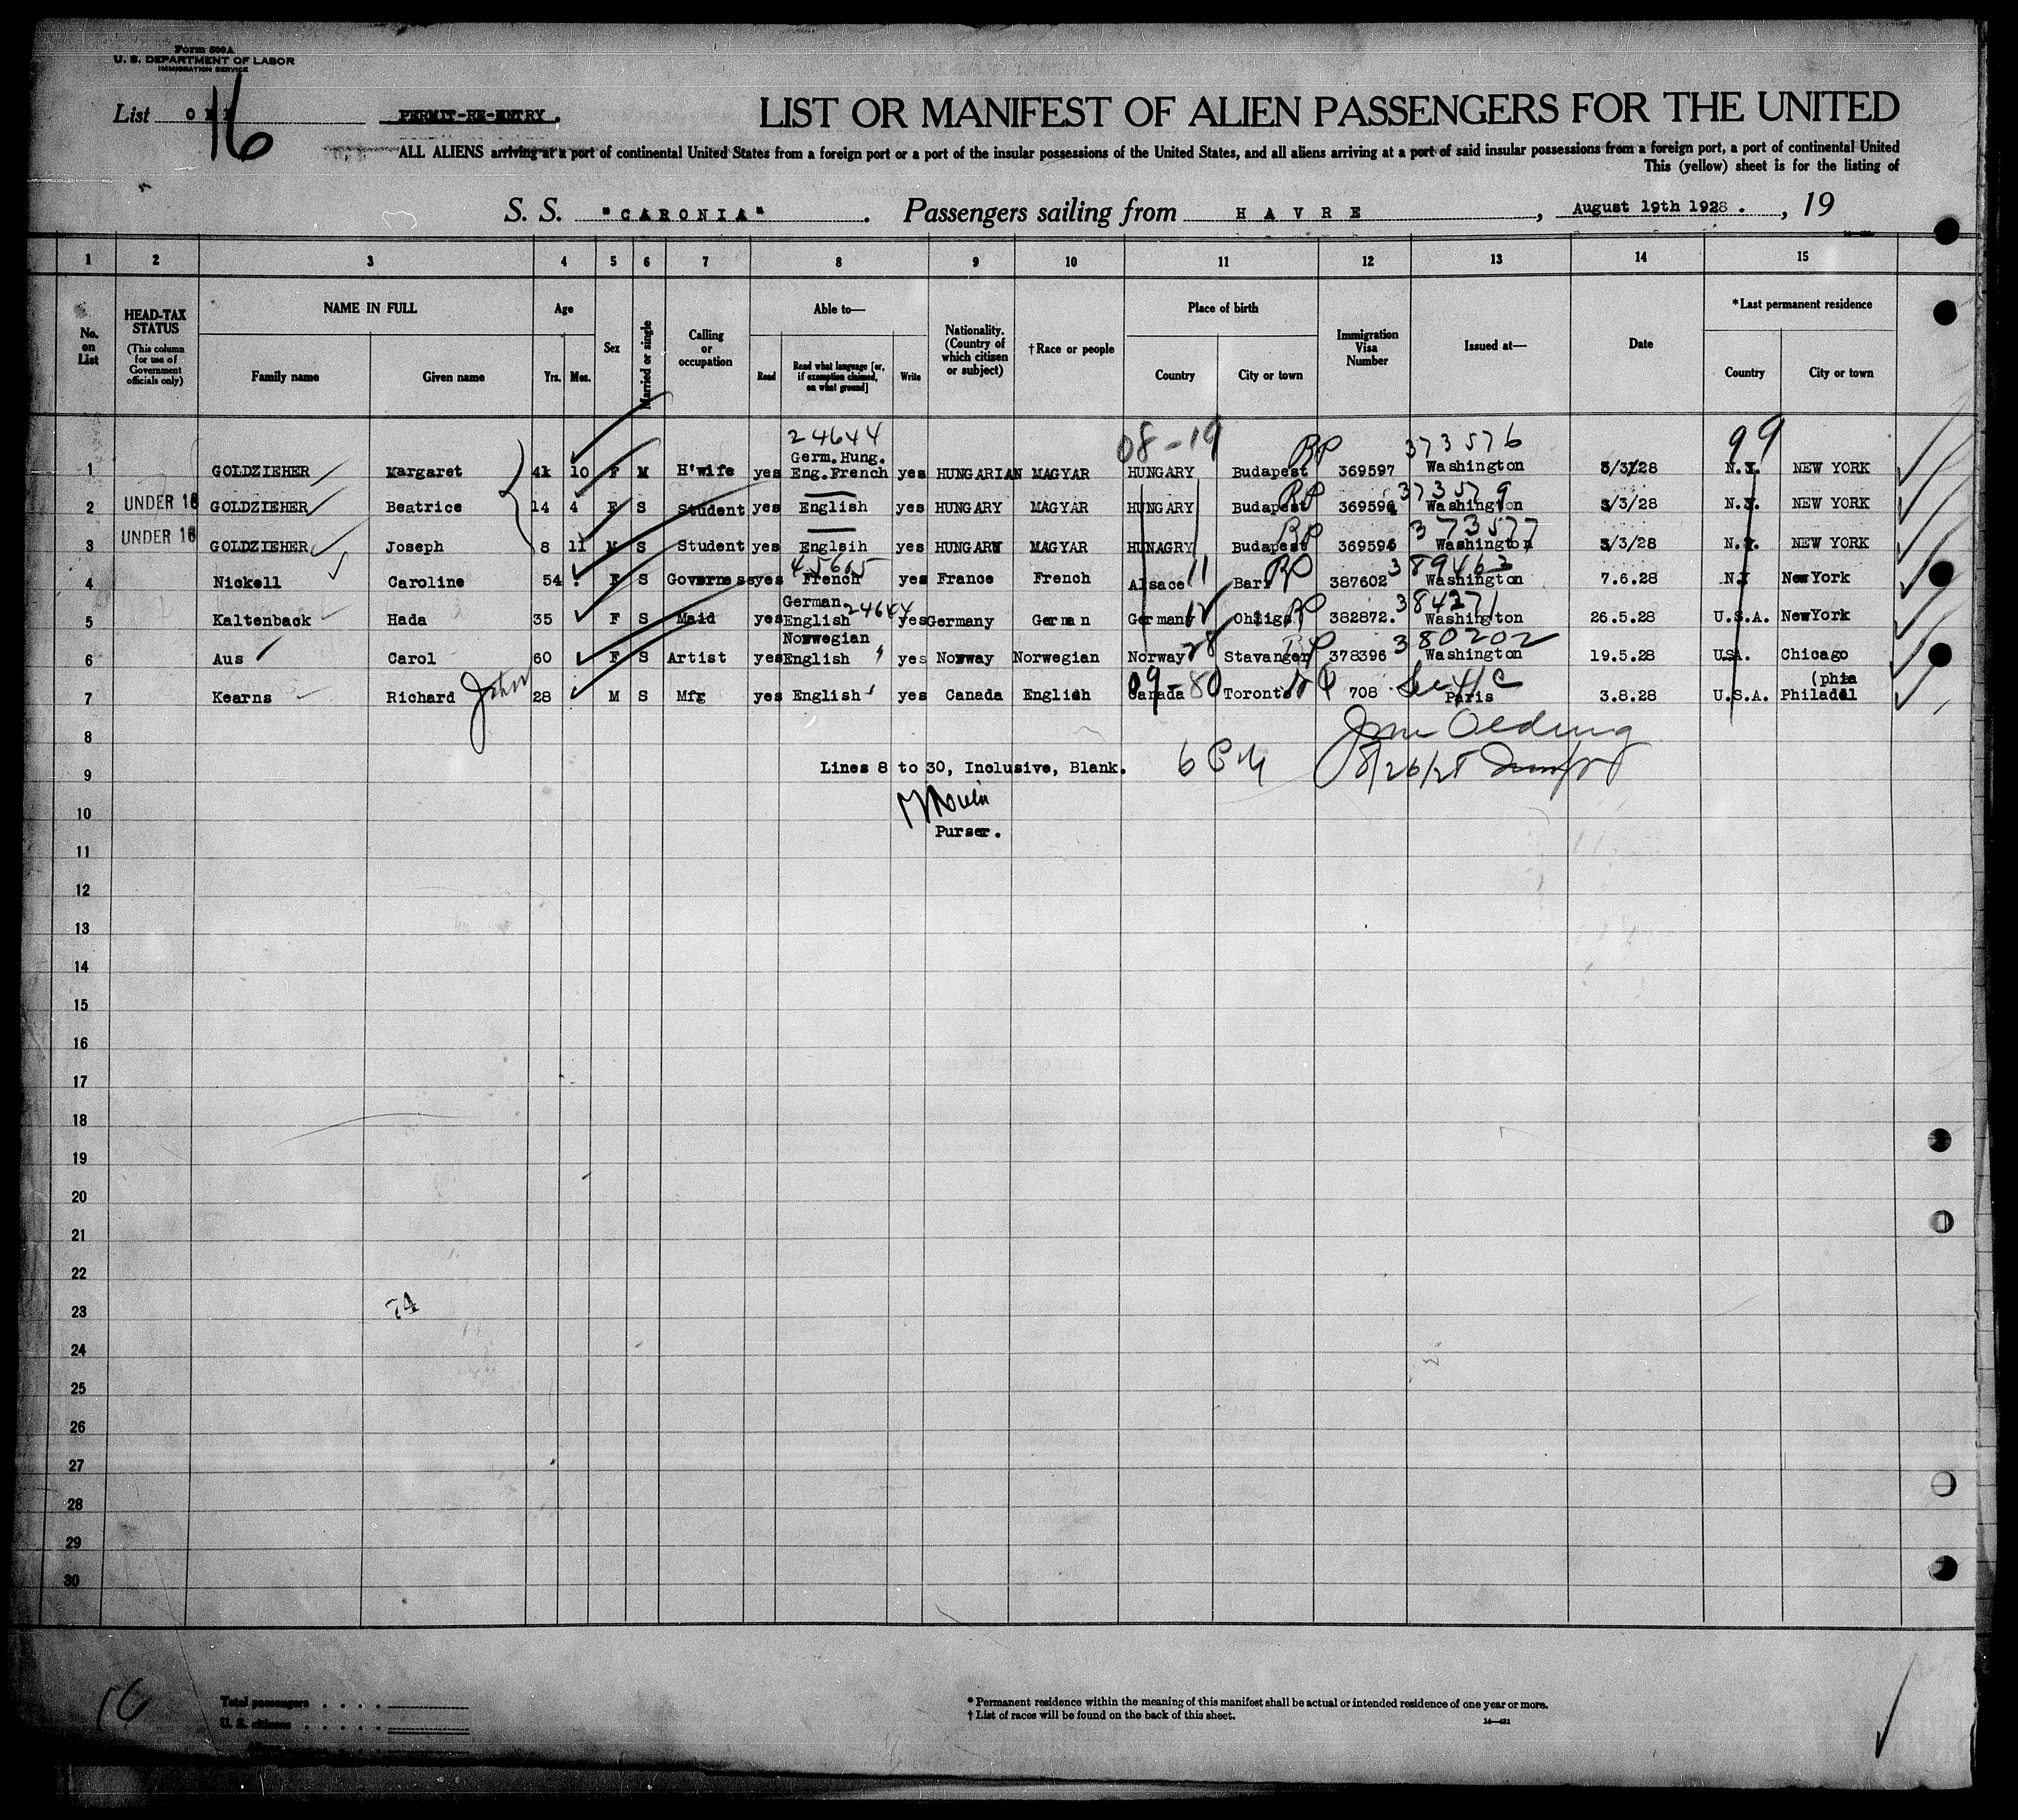 Form 500A
U. S. DEPARTMENT OF LABOR
IMMIGRATION SERVICE
List 16
PERMIT-RE-ENTRY.
LIST OR MANIFEST OF ALIEN PASSENGERS FOR THE UNITED
ALL ALIENS arriving at a port of continental United States from a foreign port or a port of the insular possessions of the United States, and all aliens arriving at a port of said insular possessions from a foreign port, a port of continental United
This (yellow) sheet is for the listing of
S. S. "CARONIA". Passengers sailing from HAVRE, August 19th 1928., 19
1 2 3 4 5 6 7 8 9 10 11 12 13 14 15
No. on List
HEAD-TAX STATUS (This column for use of Government officials only)
NAME IN FULL Family name Given name
Age Yrs. Mos.
Sex
Married or single
Calling or occupation
Able to— Read Read what language [or, if exemption claimed, on what ground] Write
Nationality. (Country of which citizen or subject)
†Race or people
Place of birth Country City or town
Immigration Visa Number
Issued at—
Date
*Last permanent residence Country City or town
24644 08-19 373576 99
1 GOLDZIEHER Margaret 41 10 F M H'wife yes Germ.Hung. Eng.French yes HUNGARIAN MAGYAR HUNGARY Budapest RP 369597 Washington 3/3/28 N.Y. NEW YORK
2 UNDER 16 GOLDZIEHER Beatrice 14 4 F S Student yes English yes HUNGARY MAGYAR HUNGARY Budapest RP 369594 373579 Washington 3/3/28 N.Y. NEW YORK
3 UNDER 16 GOLDZIEHER Joseph 8 11 M S Student yes Englsih yes HUNGARY MAGYAR HUNAGRY Budapest RP 369596 373577 Washington 3/3/28 N.Y. NEW YORK
4 Nickell Caroline 54 F S Governess yes 45665 French yes France French Alsace 11 Barr RP 387602 389463 Washington 7.6.28 N.Y NewYork
5 Kaltenback Hada 35 F S Maid yes German English 24644 yes Germany German Germany 12 Ohligs RP 382872. 384271 Washington 26.5.28 U.S.A. NewYork
6 Aus Carol 60 F S Artist yes Norwegian English yes Norway Norwegian Norway 28 Stavanger RP 378396 380202 Washington 19.5.28 USA. Chicago
7 Kearns Richard John 28 M S Mfg yes English yes Canada English Canada 09-80 Toronto 708 Sec 4/C Paris 3.8.28 U.S.A. Philadel (phia
8
9 Lines 8 to 30, Inclusive, Blank.
8/26/28
10
Purser.
11
12
13
14
15
16
17
18
19
20
21
22
23 74
24
25
26
27
28
29
30
16
Total passengers . . . .
U. S. citizens . . . . .
* Permanent residence within the meaning of this manifest shall be actual or intended residence of one year or more.
† List of races will be found on the back of this sheet.